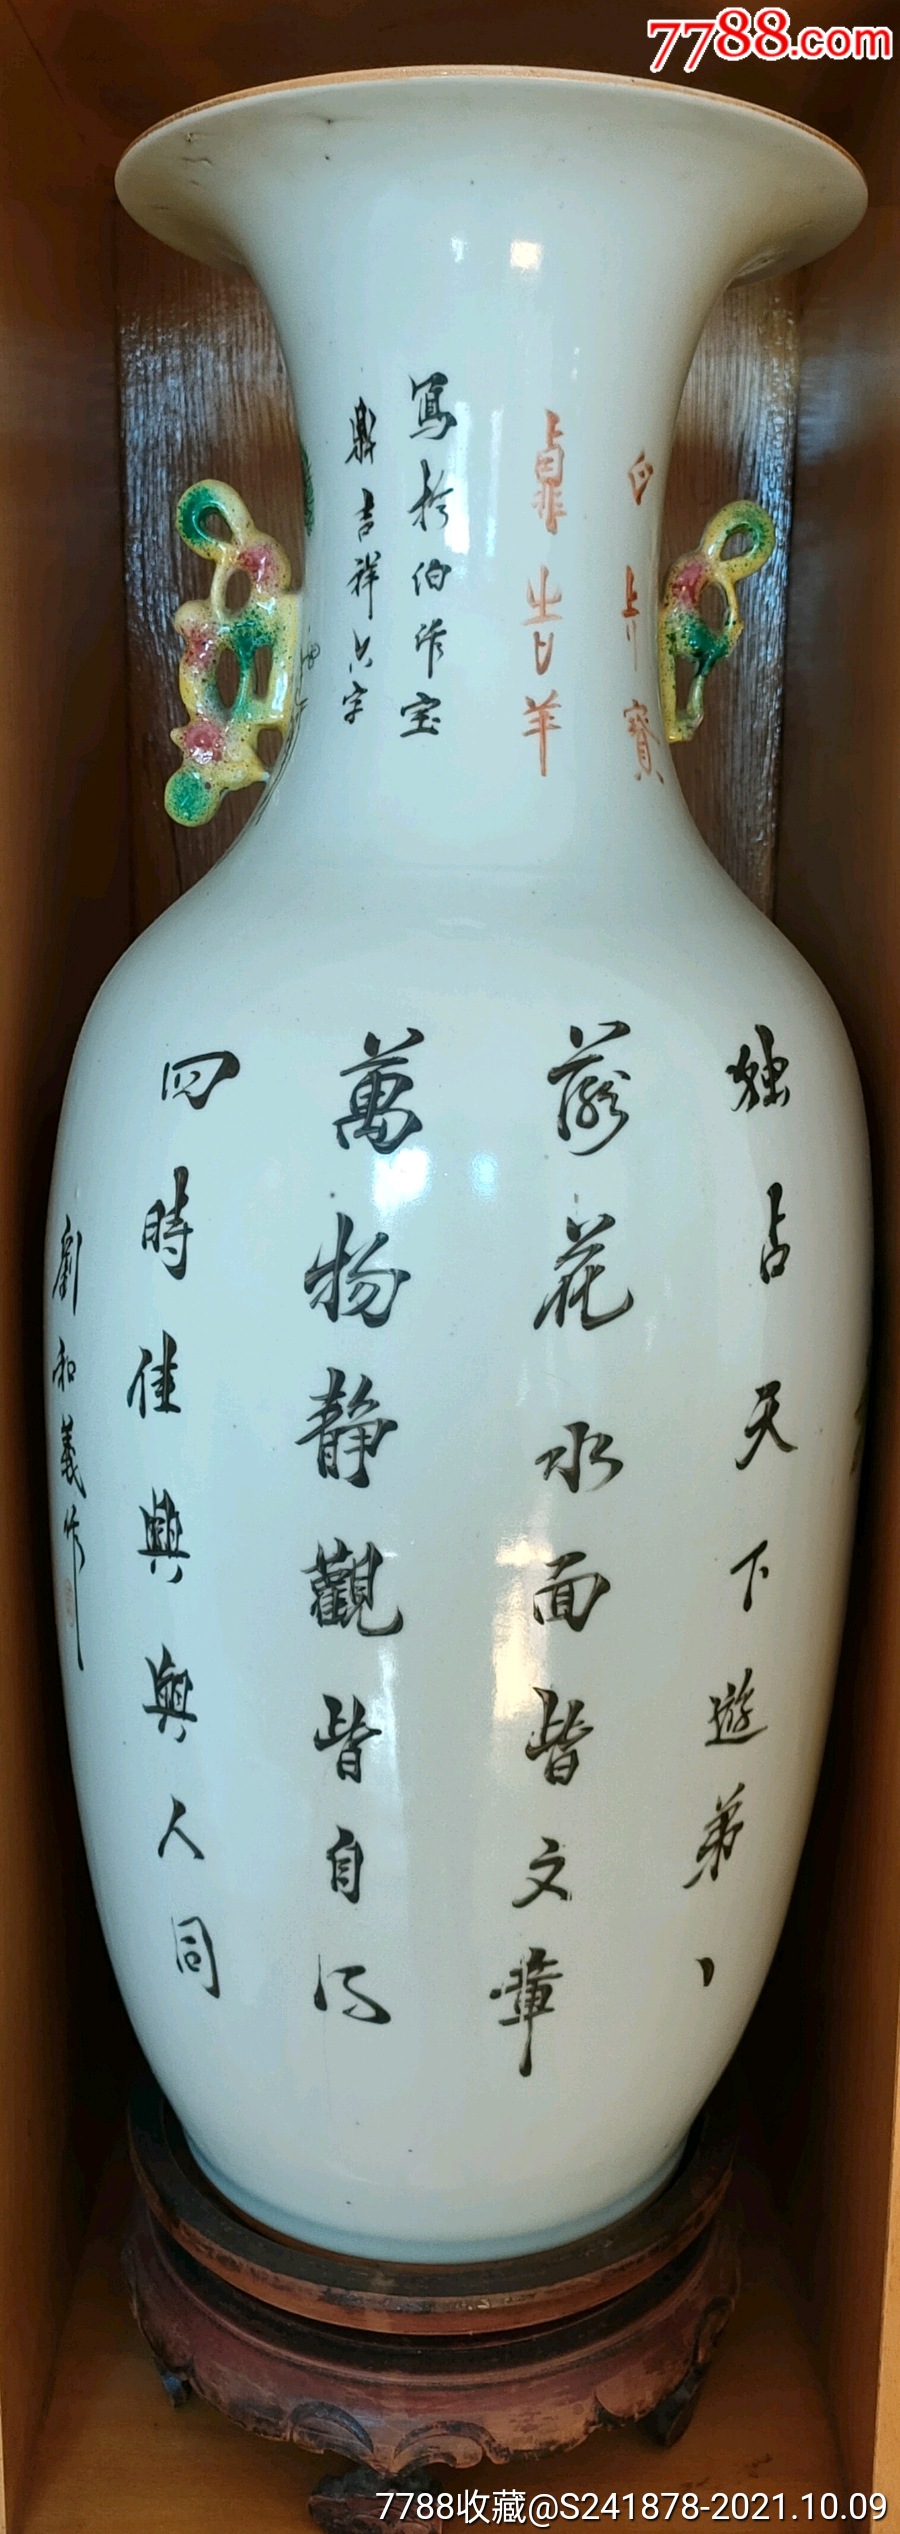 7788.com
寫於伯作宝
鼎吉祥六字
独占天下遊弟丶
落花水面皆文章
萬物静觀皆自得
四時佳興與人同
劉和義作
7788收藏@S241878-2021.10.09